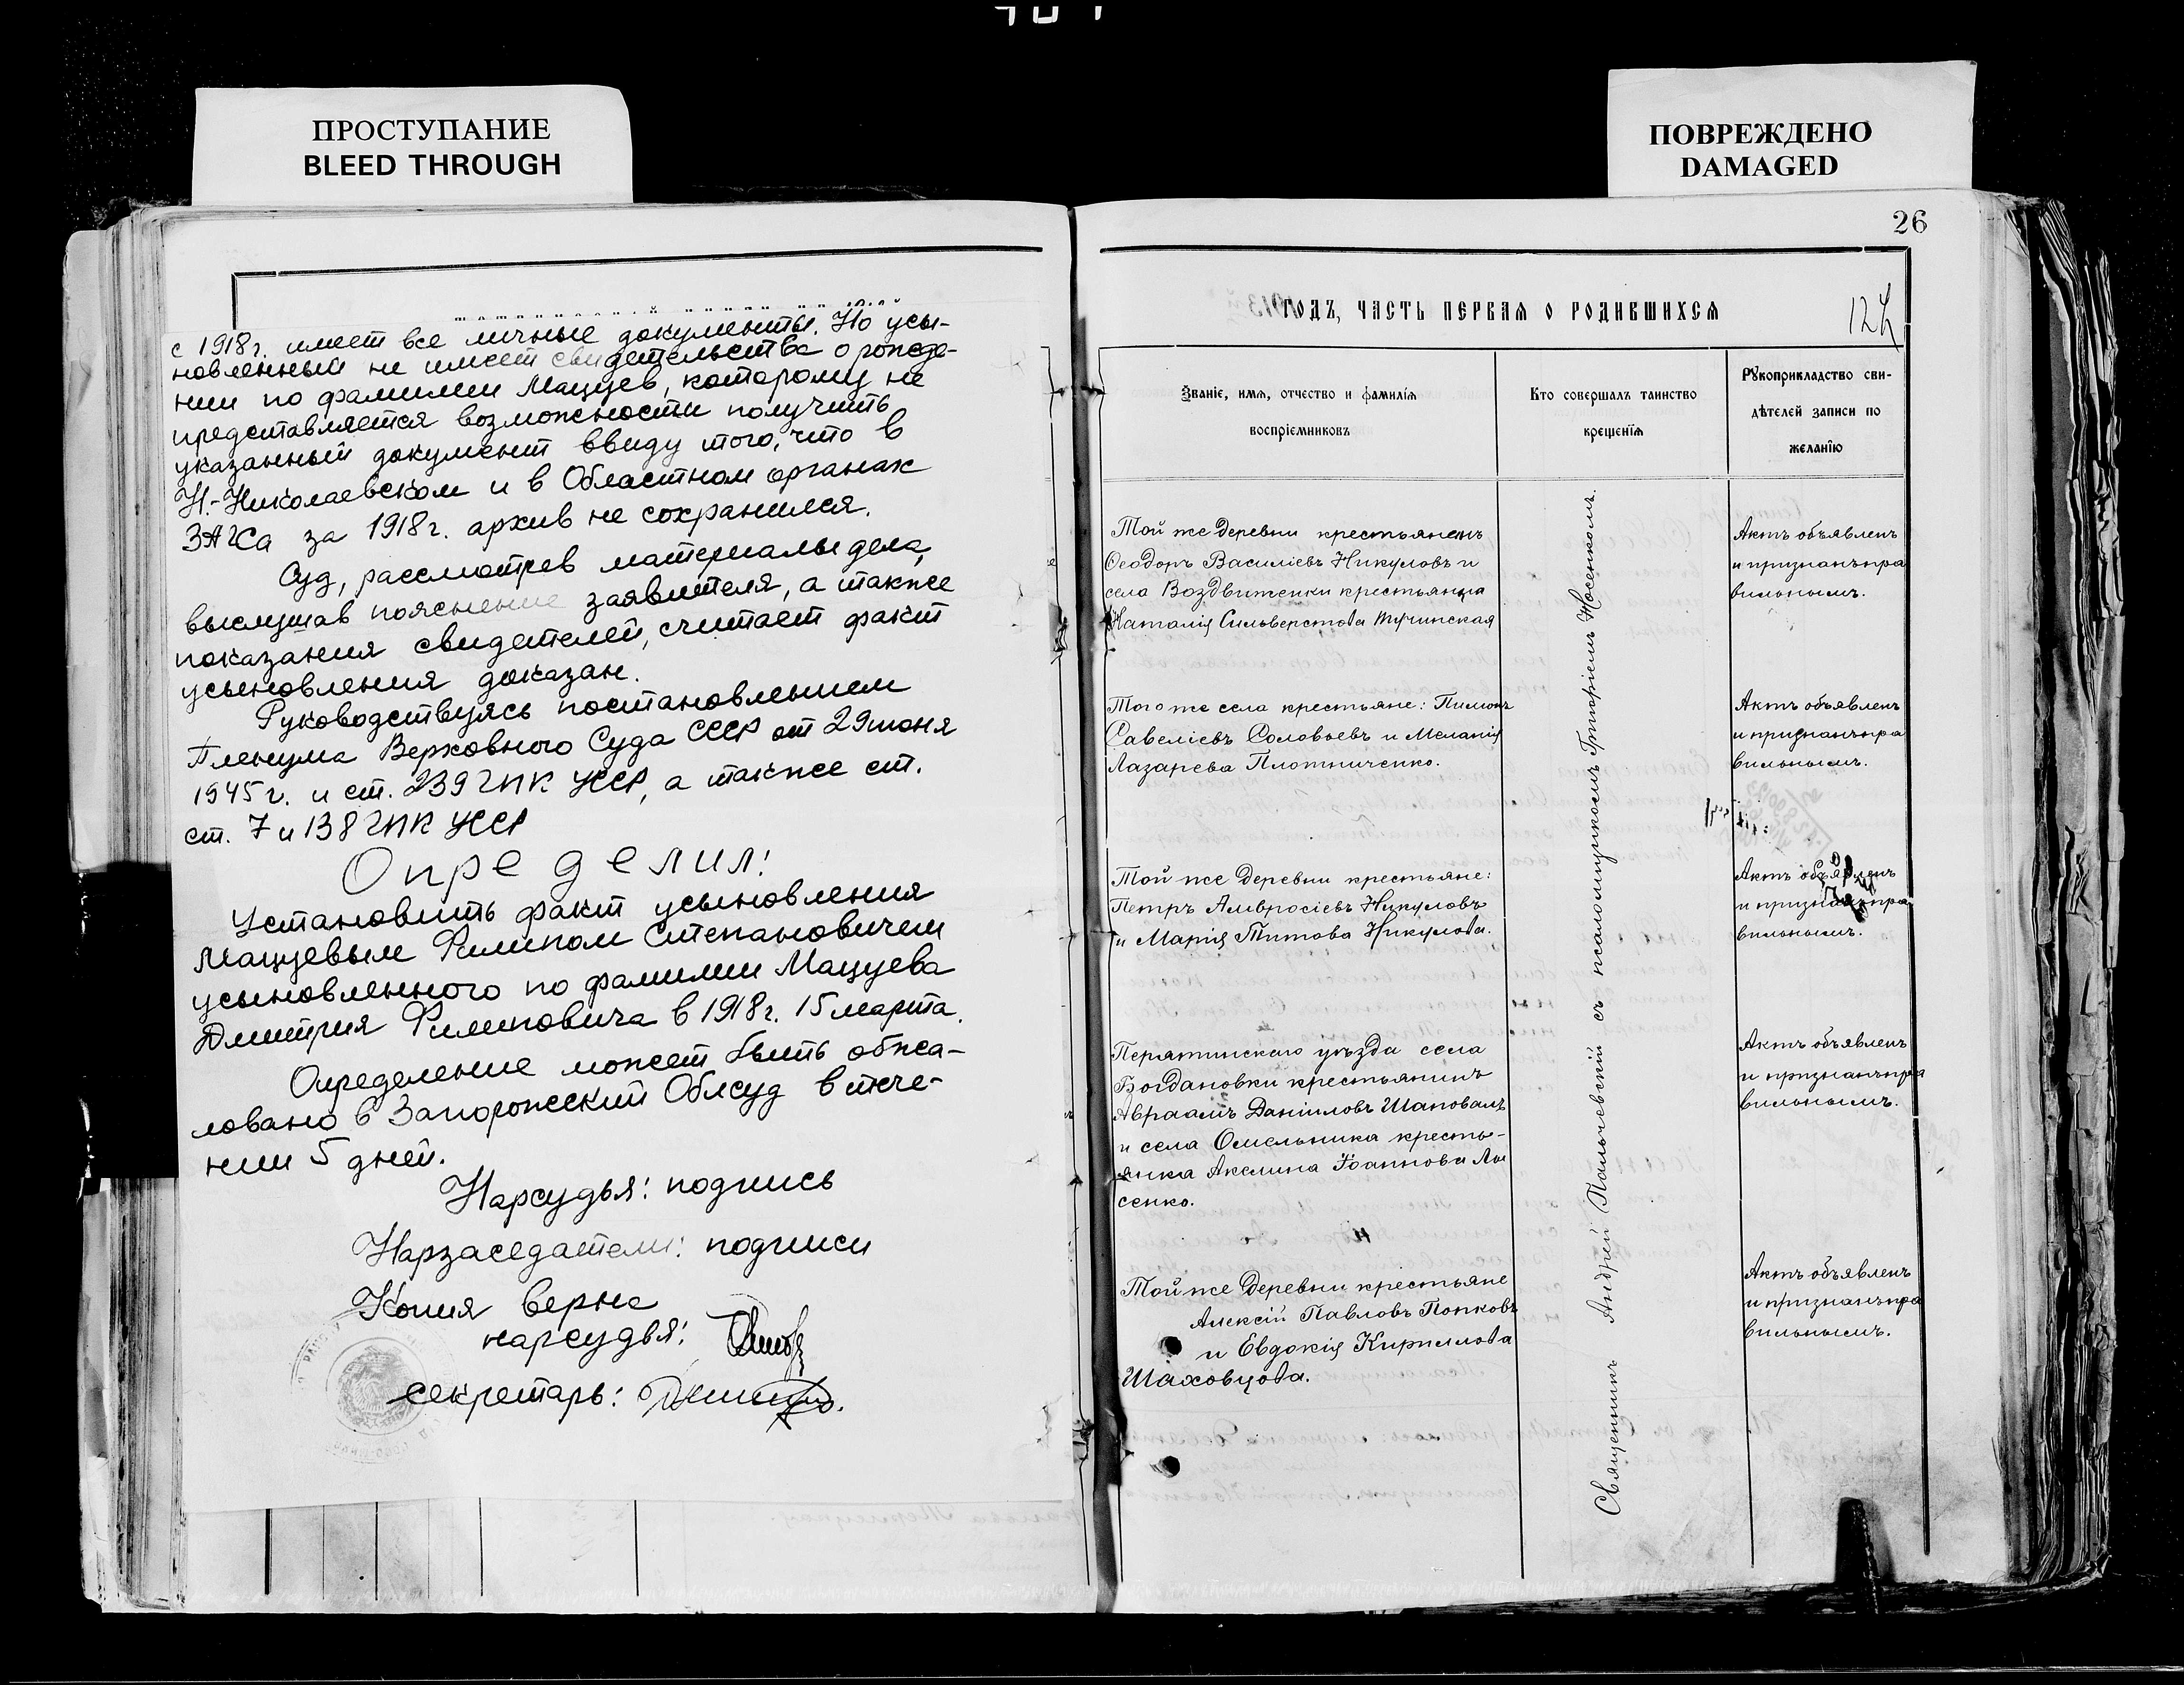 ПРОСТУПАНИЕ
BLEED THROUGH
ПОВРЕЖДЕНО
DAMAGED
с 1918 г. имеет все личные документы. Но усы-
новленный не имеет свидетельства о рожде-
нии по фамилии Мацуев, которому не
представляется возможности получить
указанный документ ввиду того, что в
Н.-Николаевском и в Областном органах
ЗАГСа за 1918 г. архив не сохранился.
Суд, рассмотрев материалы дела,
выслушав пояснение заявителя, а также
показания свидетелей, считает факт
усыновления доказан.
Руководствуясь постановлением
Пленума Верховного Суда СССР от 29 июня
1945 г. и ст. 239 ГПК УССР, а также ст.
ст. 7 и 138 ГПК УССР
Определил:
Установить факт усыновления
Мацуевым Филипом Степановичем
усыновленного по фамилии Мацуева
Дмитрия Филиповича в 1918 г. 15 марта.
Определение может быть обжа-
ловано в Запорожский Облсуд в тече-
нии 5 дней.
Нарсудья: подпись
Нарзаседатели: подписи
Копия верна
нарсудья:
секретарь:
26
ГОДЪ, ЧАСТЬ ПЕРВАЯ О РОДИВШИХСЯ
Званіе, имя, отчество и фамилія
воспріемниковъ
Кто совершалъ таинство
крещенїя
Рукоприкладство сви-
дѣтелей записи по
желанїю
Той же деревни крестьянинъ
Ѳеодоръ Василіевъ Никуловъ и
села Воздвиженки крестьянка
Наталія Сильверстова Тучинская
Того же села крестьяне: Пимонъ
Савеліевъ Соловьевъ и Меланія
Лазарева Плотниченко.
Той же деревни крестьяне:
Петръ Амвросіевъ Никуловъ
и Марія Титова Никулова.
Пирятинскаго уѣзда села
Богдановки крестьянинъ
Авраамъ Даніиловъ Шаповалъ
и села Омельника кресть-
янка Акелина Іоаннова Лы
сенко.
Той же деревни крестьяне
Алексій Павловъ Попковъ
и Евдокія Кириллова
Шаховцова.
Священникъ Андрей Пальчевскій съ псаломщикомъ Григоріемъ Носенкомъ.
Актъ объявленъ
и признанъ пра
вильнымъ.
Актъ объявленъ
и признанъ пра
вильнымъ.
Актъ объявленъ
и признанъ пра
вильнымъ.
Актъ объявленъ
и признанъ пра
вильнымъ.
Актъ объявленъ
и признанъ пра
вильнымъ.